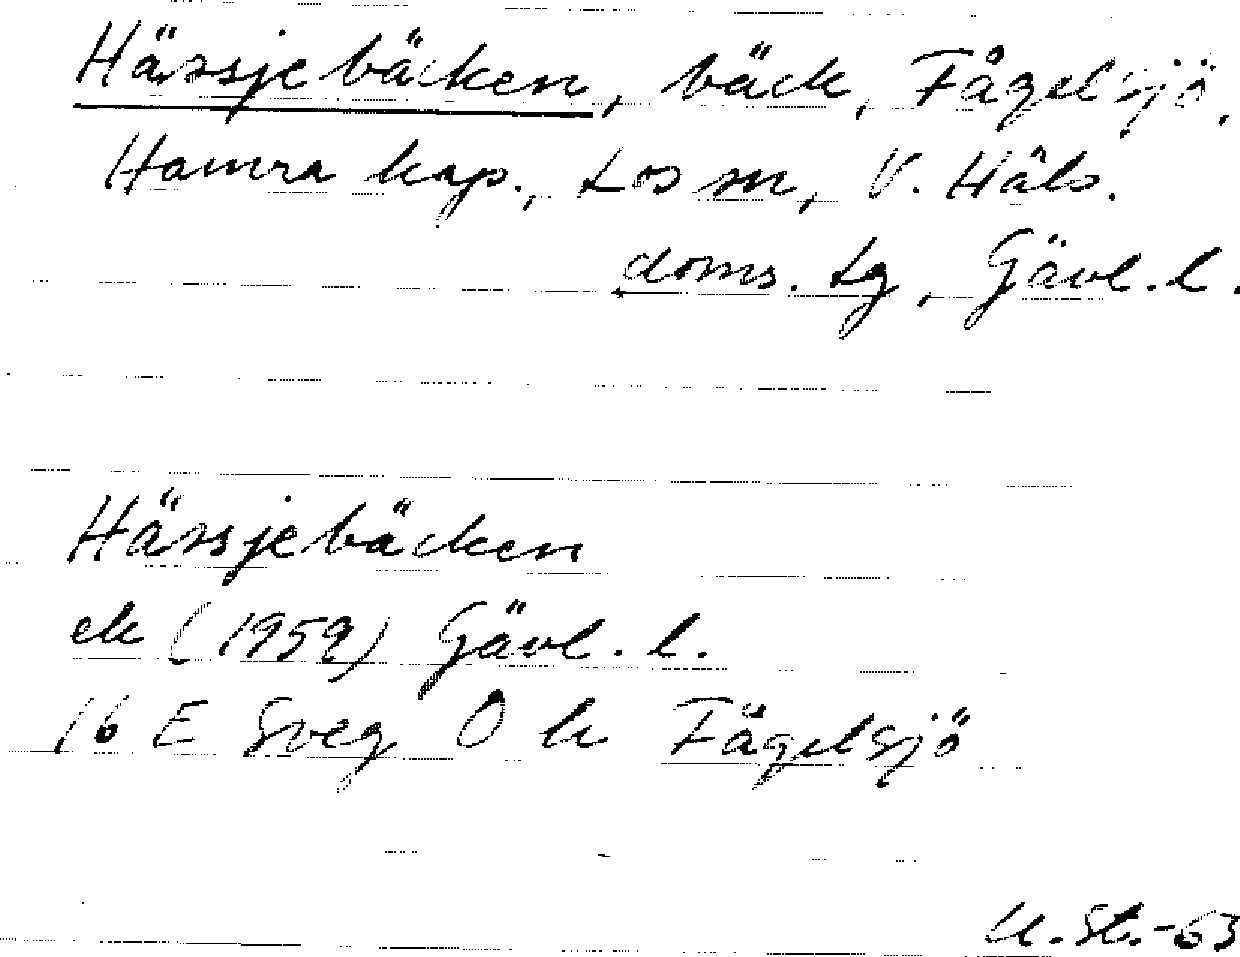 Hässjebäcken, bäck, Fågelsjö,
Hamra kap., Los sn, V. Häls.
doms. tg, Gävl. l.
Hässjebäcken
ek (1959) Gävl. l.
16 E Sveg O h Fågelsjö
U. St.-63